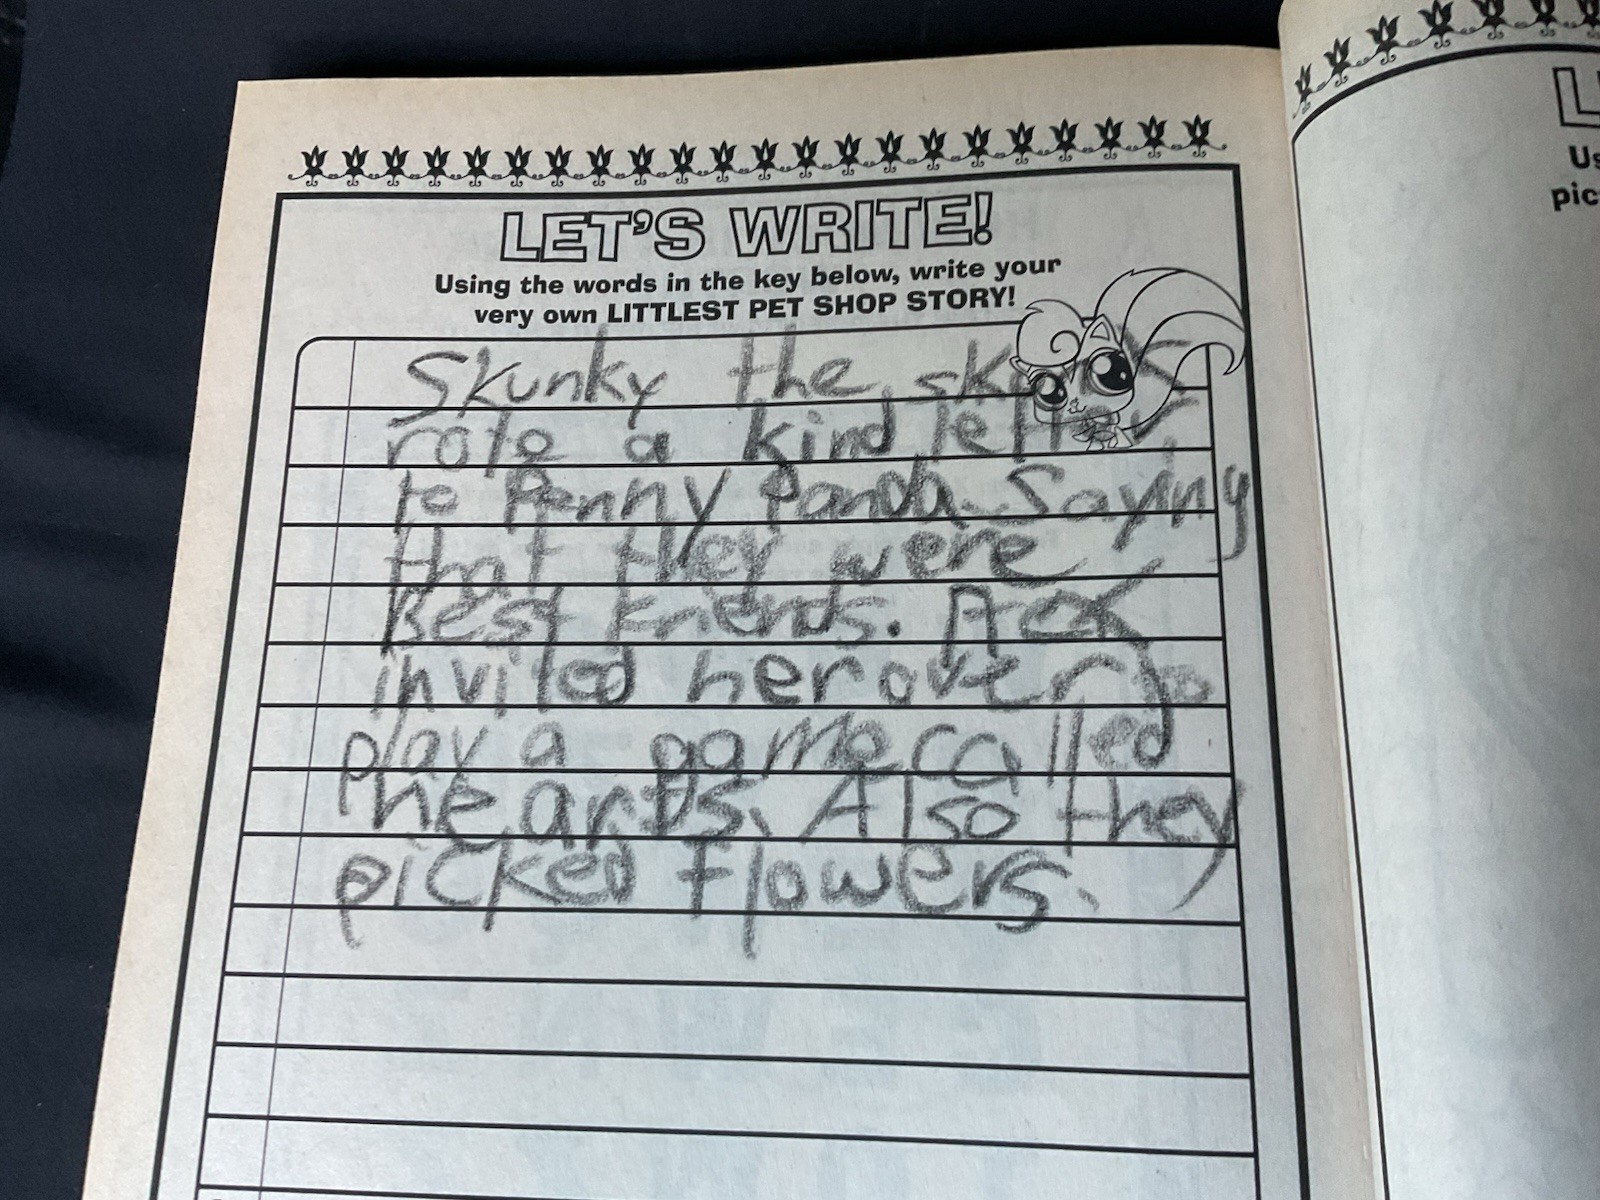 LET'S WRITE!
Using the words in the key below, write your
very own LITTLEST PET SHOP STORY!
Skunky the skunk
rote a kind letter
to Penny Panda Saying
that they were
Best Friends.
invited her over to
play a game called
hearts. Also they
picked flowers.
L
Us
pic